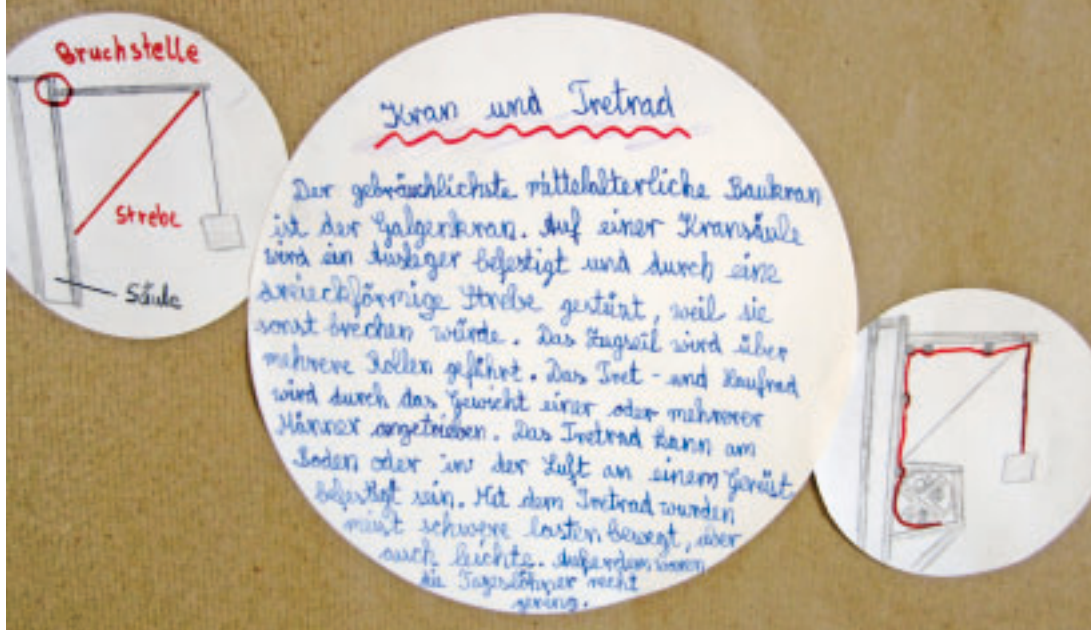 Bruchstelle
Strebe
Säule
Kran und Tretrad
Der gebräuchlichste mittelalterliche Baukran
ist der Galgenkran. Auf einer Kransäule
wird ein Ausleger befestigt und durch eine
dreieckförmige Strebe gestützt, weil sie
sonst brechen würde. Das Zugseil wird über
mehrere Rollen geführt. Das Tret- und Laufrad
wird durch das Gewicht einer oder mehrerer
Männer angetrieben. Das Tretrad kann am
Boden oder in der Luft an einem Gerüst
befestigt sein. Mit dem Tretrad wurden
meist schwere Lasten bewegt, aber
auch leichte. Außerdem waren
die Tageslöhner recht
gering.